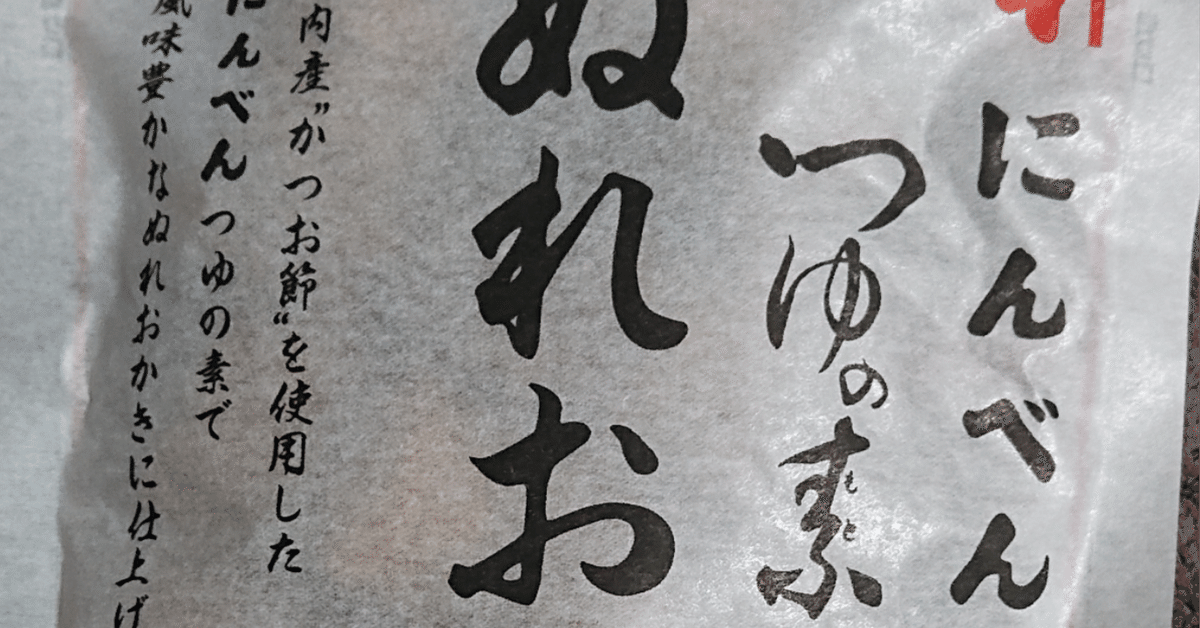 にんべん
つゆの素
もと
ぬれお
内産"かつお節"を使用した
にんべんつゆの素で
風味豊かなぬれおかきに仕上げ